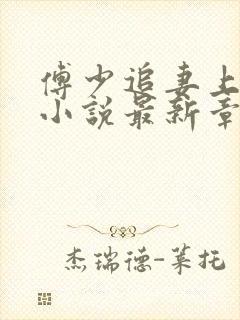 傅少追妻上
小說最新章
杰瑞德-莱托